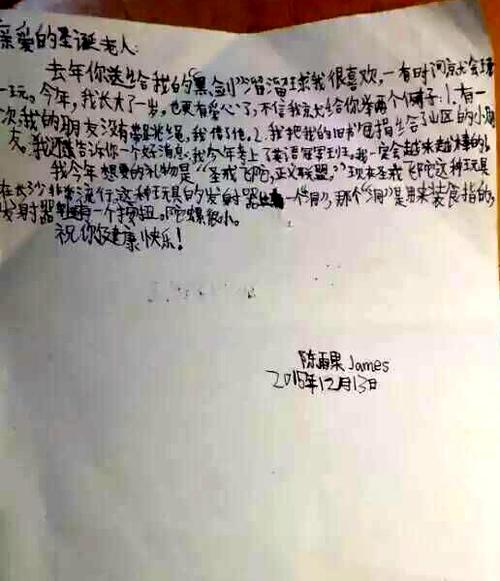 亲爱的圣诞老人:
去年你送给我的"黑剑"溜溜球我很喜欢,一有时间就会
一玩。今年,我长大了一岁,也更有爱心了,不信我就给你举两个例子:1.有一
次,我的朋友没有带跳绳,我借了他,2.我把我的旧衣捐给了山区的小朋
友。我还告诉你一个好消息:我今年考上了英语冠军班。我一定会越来越棒的。
我今年想要的礼物是"圣戒飞陀,正义联盟。"现在圣戒飞陀这种玩具
在长沙非常流行,这种玩具的发射器上有一个"洞",那个"洞"是用来装食指的,
发射器有一个按钮。陀螺很小。
祝你健康快乐!
陈雨果James
2015年12月13日